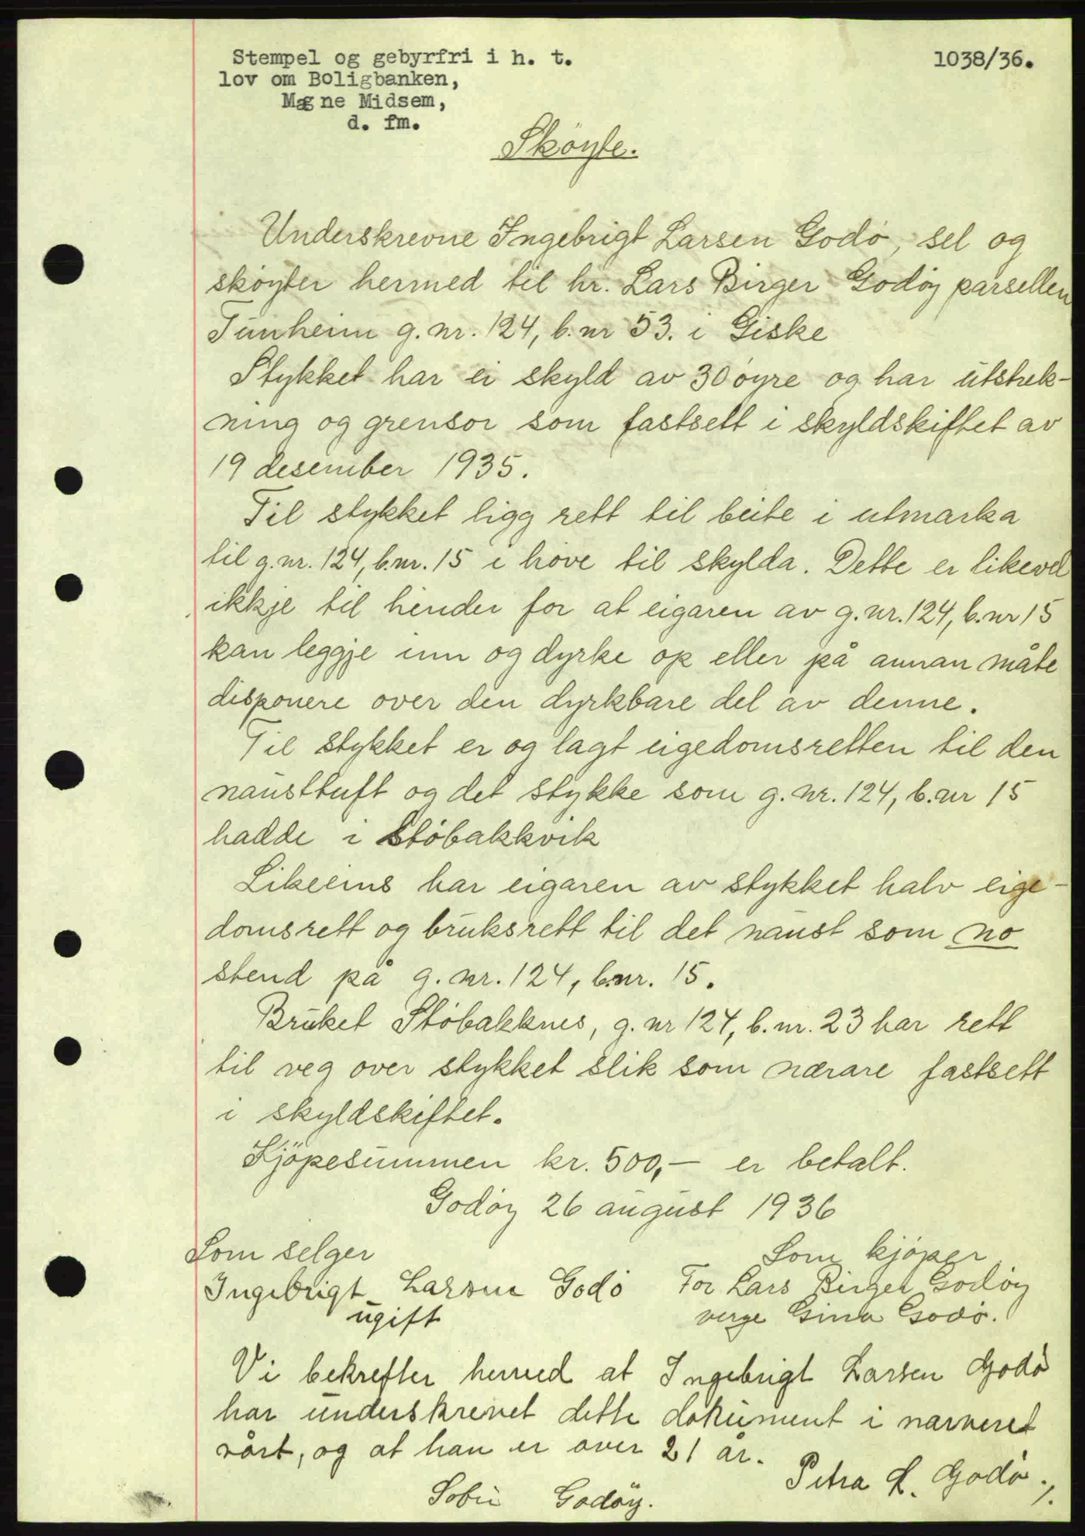 Stempel og gebyrfri i h. t.
lov om Boligbanken,
Magne Midsem,
d. fm.
1038/36.
Skøyte.
Underskrevne Ingebrigt Larsen Godø, sel og
skøyter hermed til hr. Lars Birger Godøy parsellen
Tunheim g.nr. 124, b.nr 53. i Giske
Stykket har ei skyld av 30 øyre og har utstrek-
ning og grensor som fastsett i skyldskiftet av
19 desember 1935.
Til stykket ligg rett til beite i utmarka
til g.nr. 124, b.nr. 15 i høve til skylda. Dette er likevel
ikkje til hinder for at eigaren av g.nr. 124, b.nr 15
kan leggje inn og dyrke op eller på annan måte
disponere over den dyrkbare del av denne.
Til stykket er og lagt eigedomsretten til den
nausttuft og det stykke som g.nr. 124, b.nr 15
hadde i Støbakkvik
Likeeins har eigaren av stykket halv eige-
domsrett og bruksrett til det naust som no
stend på g.nr. 124, b.nr. 15.
Bruket Støbakknes, g.nr 124, b.nr. 23 har rett
til veg over stykket slik som nærare fastsett
i skyldskiftet.
Kjøpesummen kr. 500,— er betalt.
Godøy 26 august 1936
Som selger
Som kjøper
Ingebrigt Larsen Godø
For Lars Birger Godøy
ugift
verge Gina Godø.
Vi bekrefter herved at Ingebrigt Larsen Godø
har underskrevet dette dokument i nærveret
vårt, og at han er over 21 år.
Petra L. Godø.
Godøy.